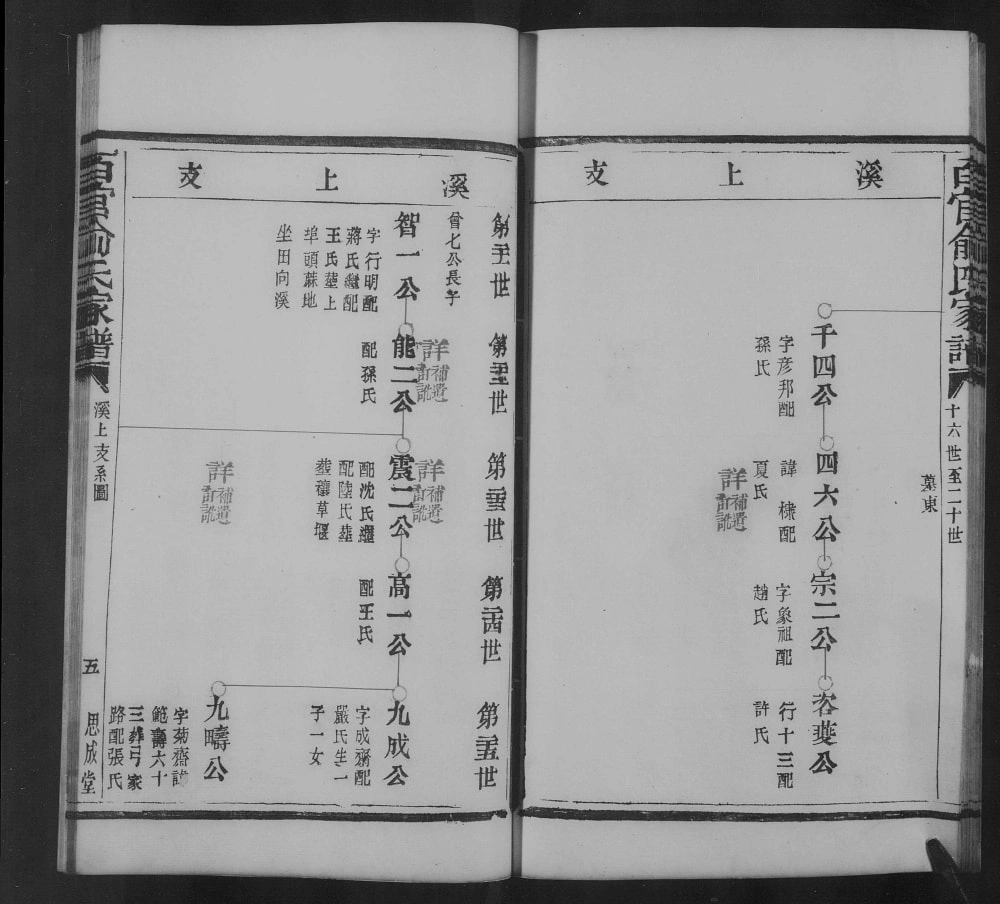 百官俞氏家譜
十六世至二十世
葉東
溪上支
千四公
字彥邦配
孫氏
四六公
諱櫞配
夏氏
詳補遺訂訛
宗二公
字象祖配
趙氏
行十三配
許氏
溪上支
第世
第世
第世
第世
第世
曾七公長子
智一公
字行明配
蔣氏繼配
王氏塟上
埠頭蔴地
坐田向溪
詳補遺訂訛
能二公
配孫氏
詳補遺訂訛
震二公
配沈氏繼
配陸氏塟
穰草堰
詳補遺訂訛
高一公
配王氏
九成公
字成齋配
嚴氏生一
子一女
九疇公
字菊齋諱
範壽六十
三葬弓家
路配張氏
百官俞氏家譜
溪上支系圖
五
思成堂